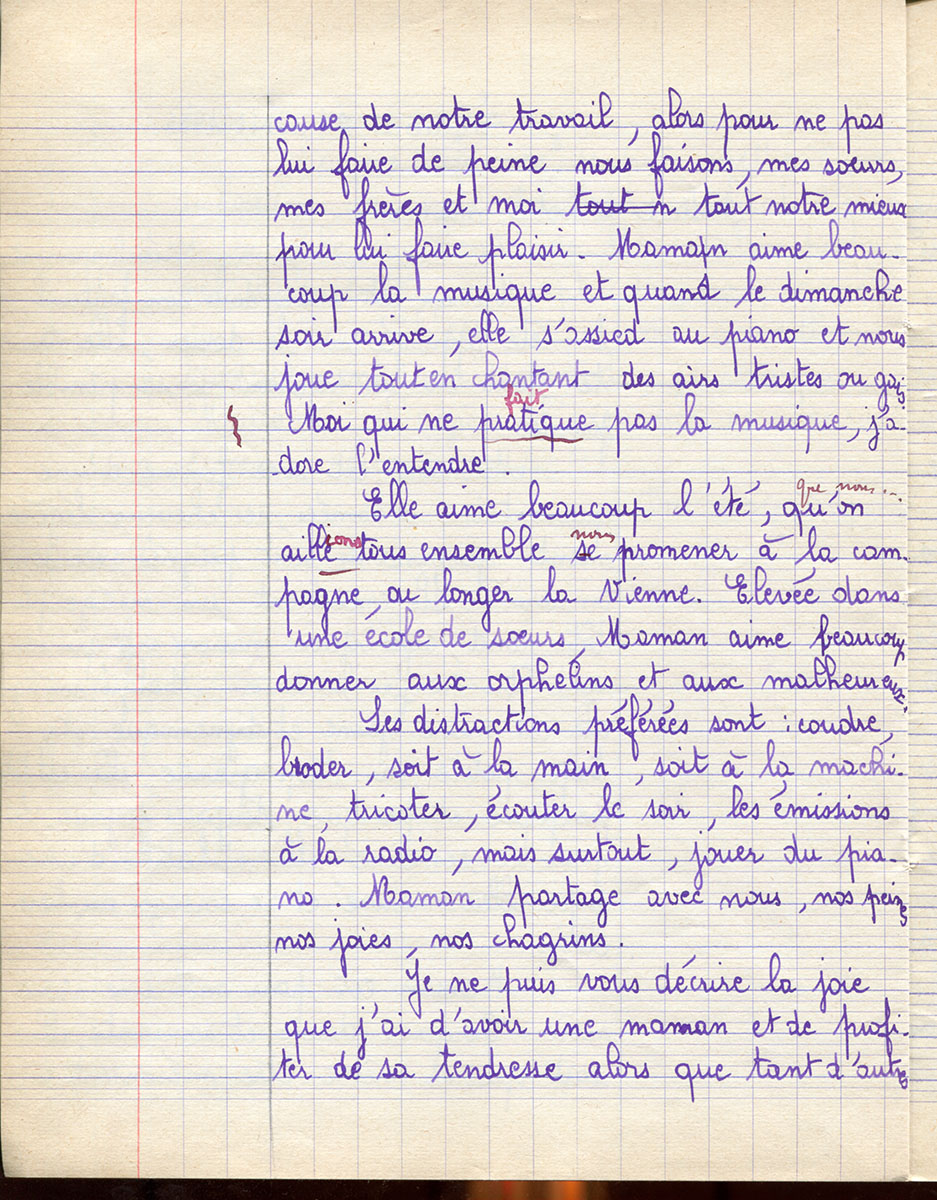 cause de notre travail, alors pour ne pas
lui faire de peine nous faisons, mes sœurs,
mes frères et moi tout n tout notre mieux
pour lui faire plaisir. Maman aime beau-
coup la musique et quand le dimanche
soir arrive, elle s'assied au piano et nous
joue tout en chantant des airs tristes ou gais
fait
Moi qui ne pratique pas la musique, j'a-
dore l'entendre.
que nous...
Elle aime beaucoup l'été, qu'on
ions nous
aille tous ensemble se promener à la cam-
pagne, ou longer la Vienne. Elevée dans
une école de sœurs, Maman aime beaucoup
donner aux orphelins et aux malheureux.
Ses distractions préférées sont : coudre,
broder, soit à la main, soit à la machi-
ne, tricoter, écouter le soir, les émissions
à la radio, mais surtout, jouer du pia-
no. Maman partage avec nous, nos peines
nos joies, nos chagrins.
Je ne puis vous décrire la joie
que j'ai d'avoir une maman et de profi-
ter de sa tendresse alors que tant d'autres